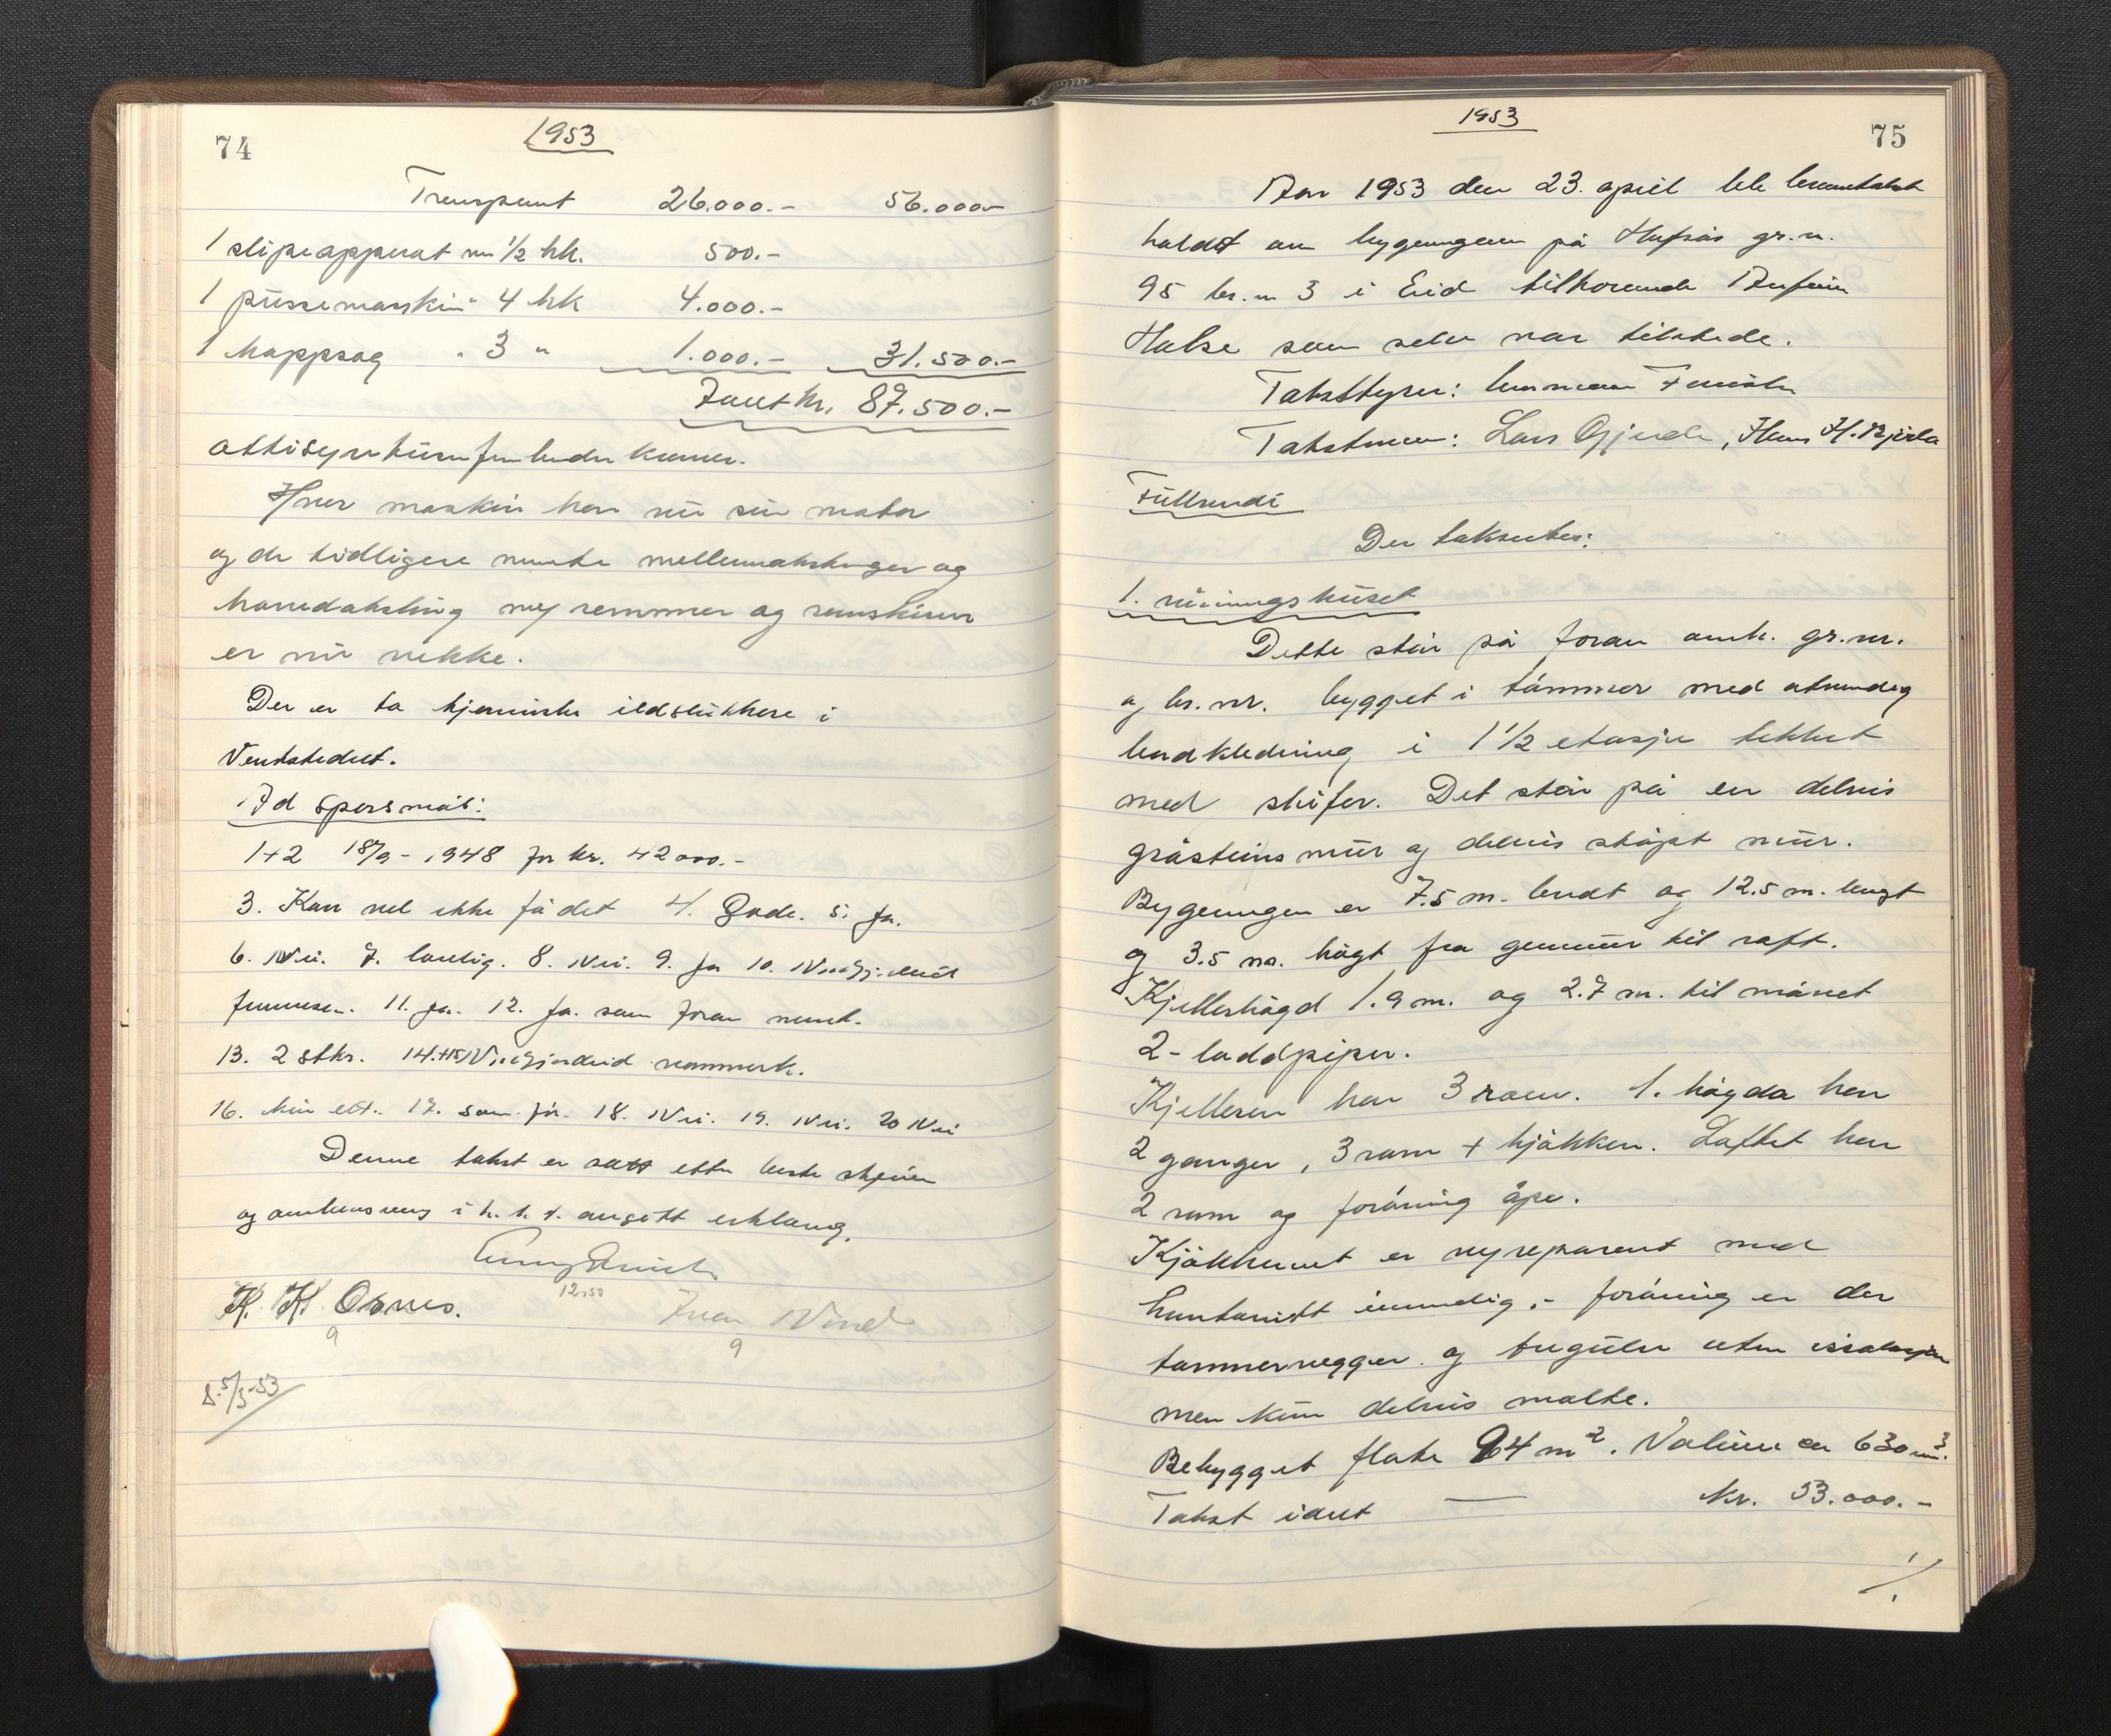 74
1953
Transport 26.000.- 56.000.-
1 slipeapparat m 1/2 hk. 500.-
1 pussemaskin " 4 hk 4.000.-
1 kappsag " 3 " 1.000.- 31.500.-
Jant kr. 87.500.-
åttisyvtusenfemhundre kroner.
Hver maskin har nu sin motor
og de tidligere nevnte mellemakslinger og
hovedaksling m/ remmer og remskiver
er nu vekke.
Der er to kjemiske ildslukkere i
Verkstedet.
Ad spørsmål:
1+2 18/9-1948 for kr. 42000.-
3. Kan vel ikke få det 4. Gode. 5. Ja.
6. Nei. 7. 8. Nei. 9. Ja 10.
11. Ja. 12. Ja. som foran nevnt.
13. 2 stkr. 14.+15)
16. 17. som før. 18. Nei. 19. Nei. 20 Nei
Denne takst er satt etter beste skjønn
og i h. t. avgitt erklæring.
12.50
K. K. Osnes. Ivar
9 9
8. 5/5-53
1953
75
Aar 1953 den 23. april ble branntakst
holdt over bygningene på Hafsås gr.n.
95 br.n 3 i Eid tilhørende
Halse som selv var tilstede.
Takststyrer: lensmann
Takstmenn: Lars Gjerde, Hans H. Bjørlo
Fullrudi
Der takseres:
1. våningshuset
Dette står på foran omh. gr.nr.
og br.nr. bygget i tømmer med utvendig
bordkledning i 1 1/2 etasje tekket
med skifer. Det står på en delvis
gråsteins mur og delvis støpt mur.
Bygningen er 7.5 m. bredt og 12.5 m. langt
og 3.5 m. høgt fra grunnmur til raft.
Kjellerhøgd 1.9 m. og 2.7 m. til mønet
2 - loddpiper.
Kjelleren har 3 rom. 1. høgda har
2 ganger, 3 rom + kjøkken. Loftet har
2 rom og forøvrig åpe.
Kjøkkenet er nyreparert med
huntonitt innvendig, - forøvrig er der
tømmervegger og tregulv uten issolasjon
men kun delvis malte.
Bebygget flate 94 m². Volum er 630 m³.
Takst idnt — kr. 53.000.-
./.